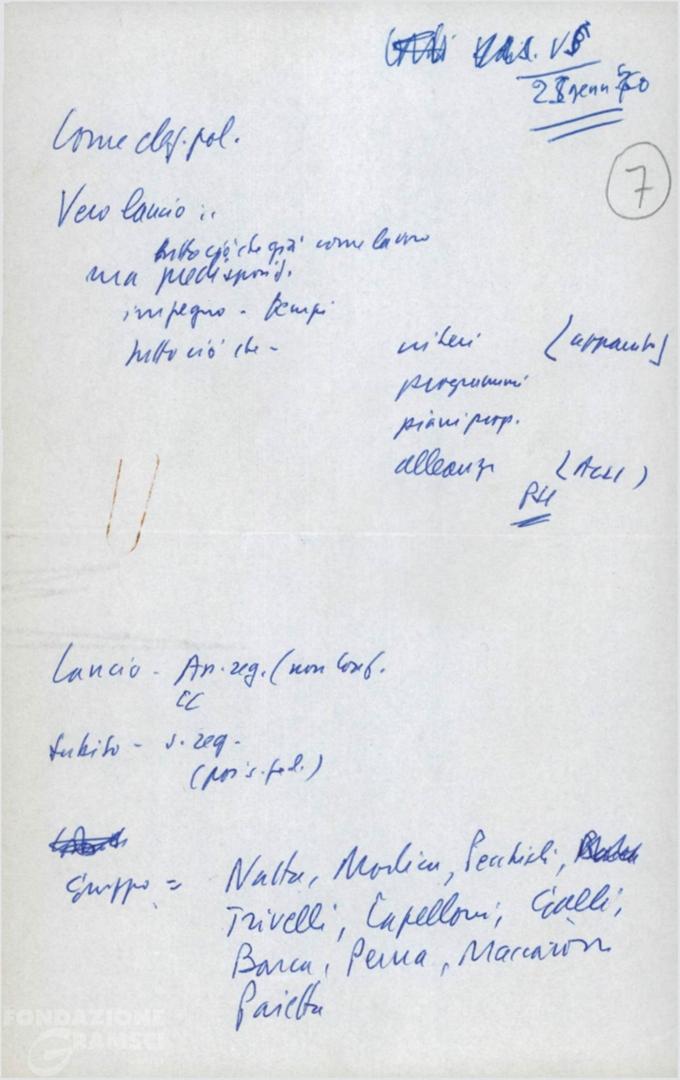 Come deg. pol.
7
Vero lancio :.
tutto ciò che già come lavoro
ma predispond.
impegno - tempi
tutto ciò che -
criteri
programmi
piani prep.
alleanze
PSI
Lancio - An. reg. (non conf.
CC
Subito - s. reg.
(poi s. fed.)
Gruppo =
Natta, Modica, Pecchioli,
Trivelli, Capelloni, Galli,
Barca, Perna, Maccarrone
Paietta
FONDAZIONE
GRAMSCI